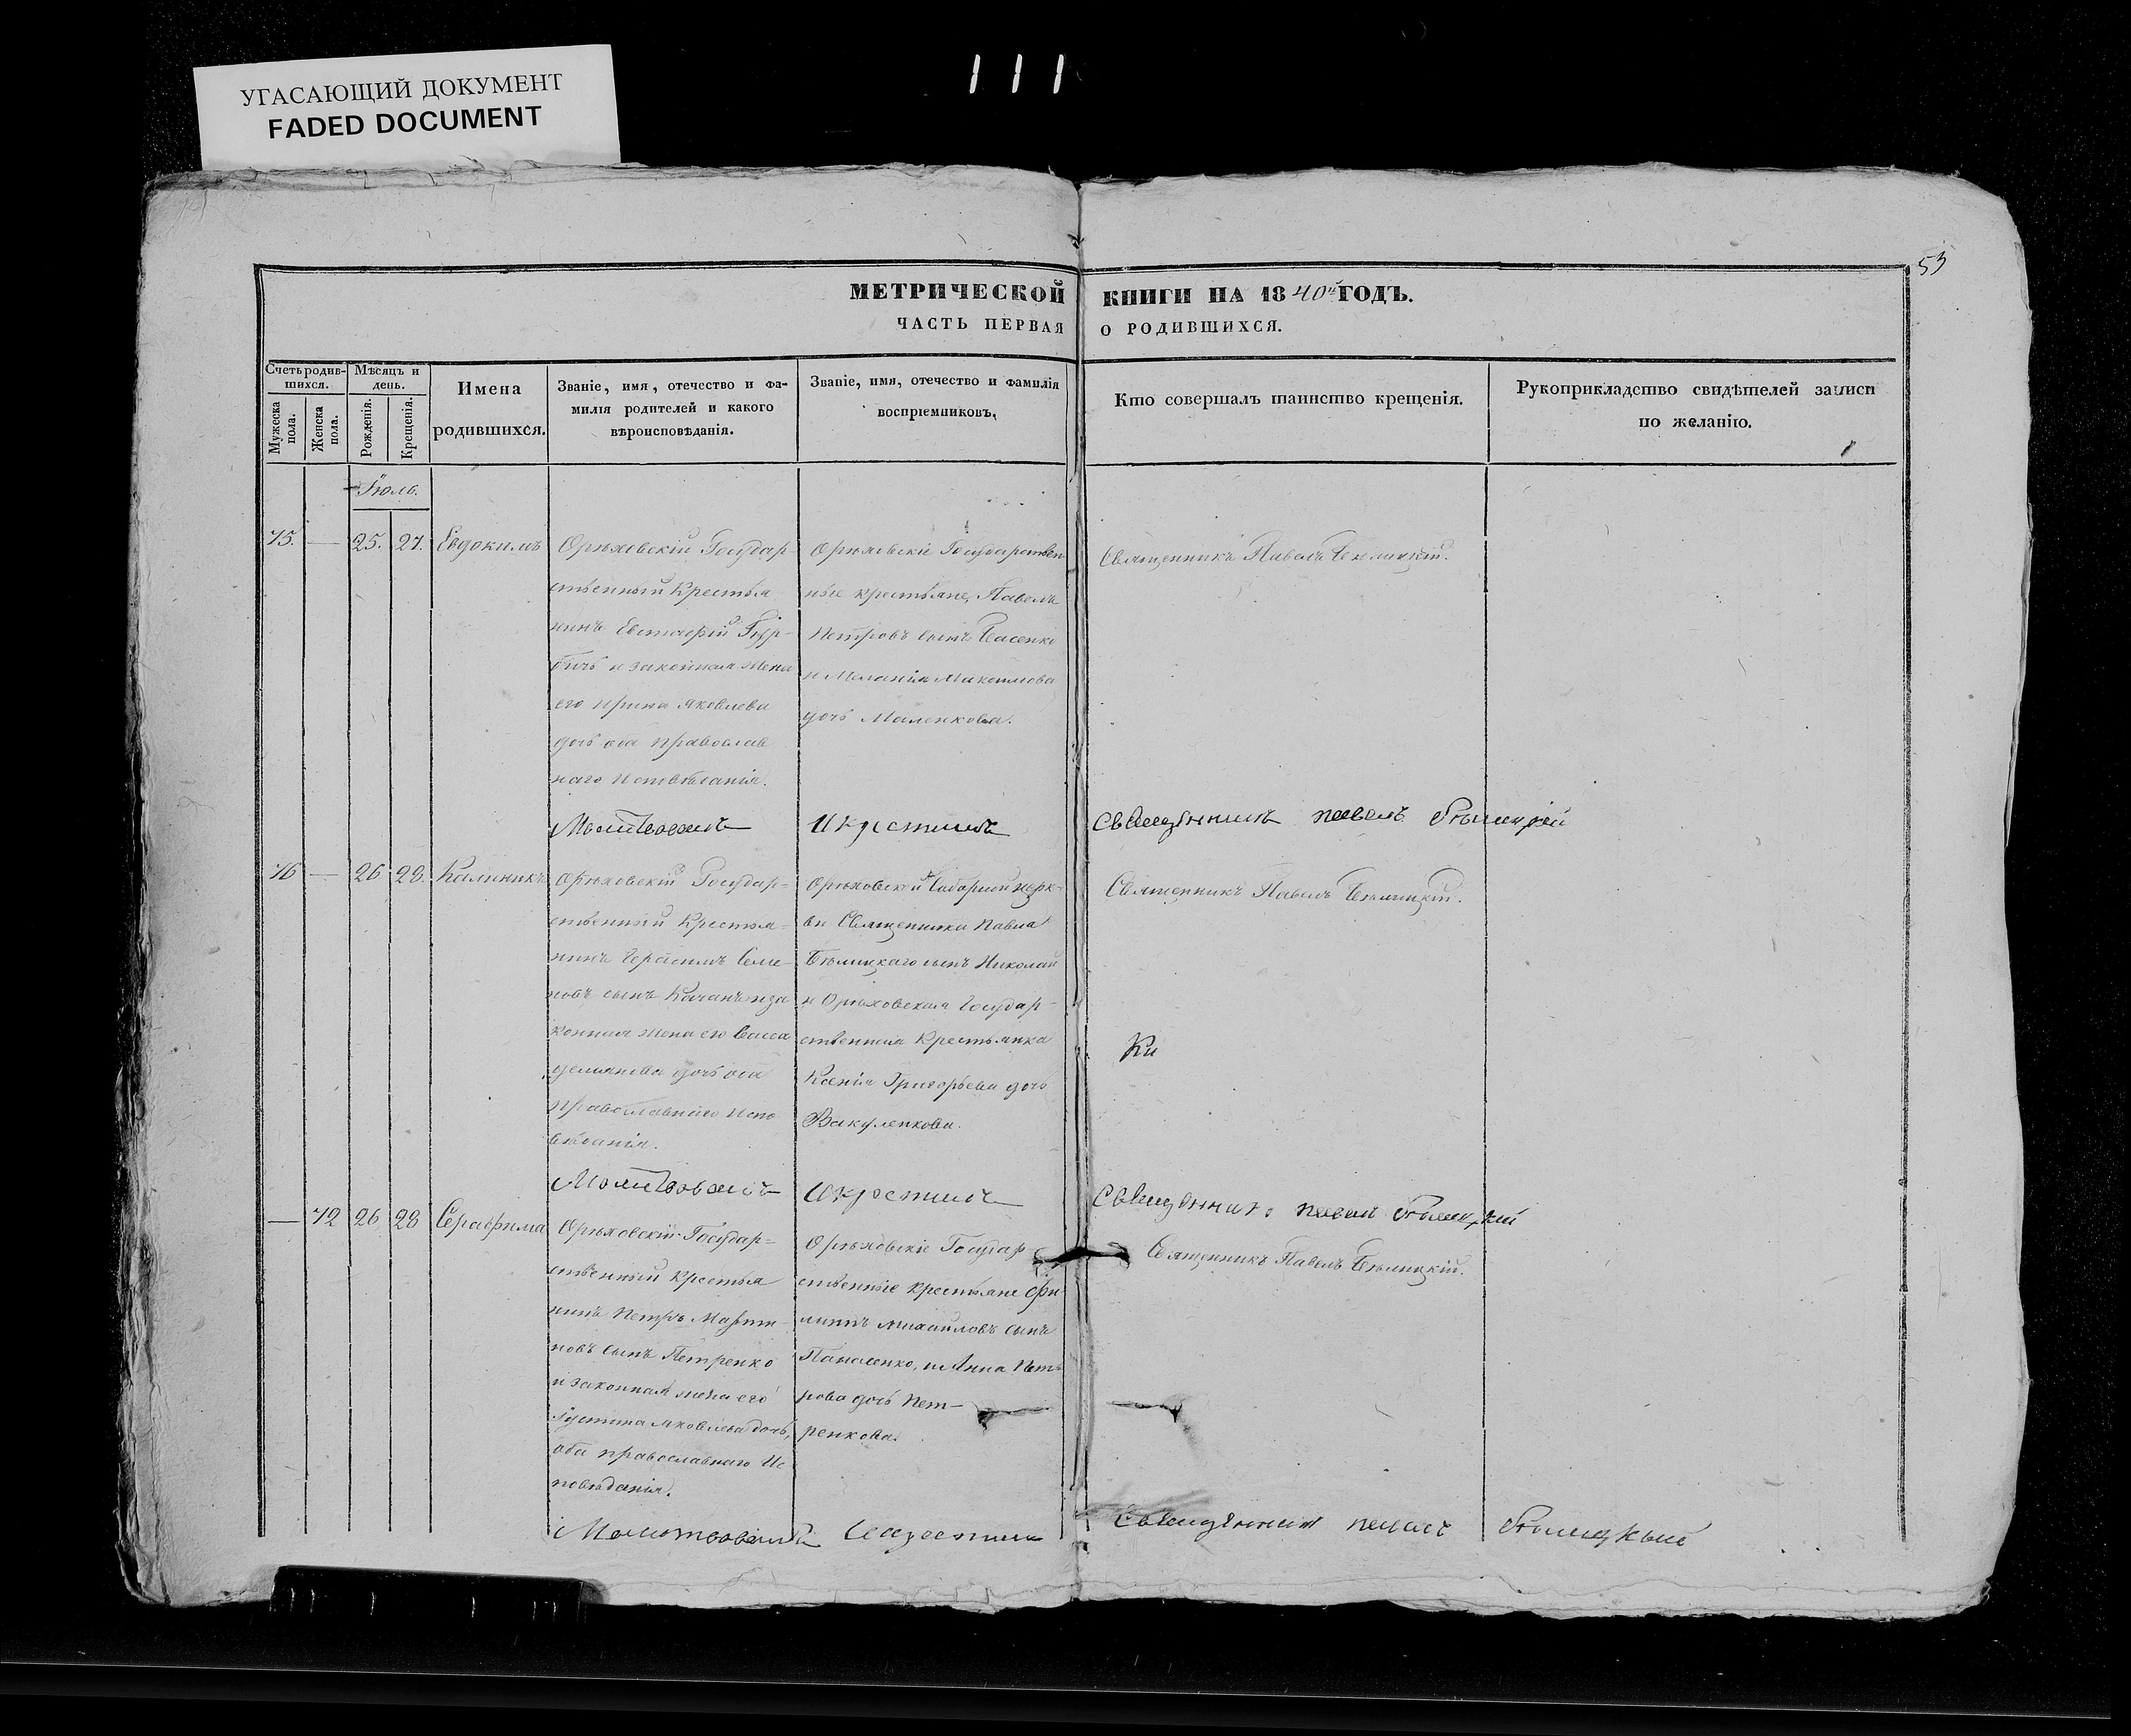 УГАСАЮЩИЙ ДОКУМЕНТ
FADED DOCUMENT
111
53
МЕТРИЧЕСКОЙ КНИГИ НА 1840й ГОДЪ.
ЧАСТЬ ПЕРВАЯ О РОДИВШИХСЯ.
Счетъ родив-
шихся.
Мужеска
пола.
Женска
пола.
Мѣсяцъ и
день.
Рожденія.
Крещенія.
Имена
родившихся.
Званіе, имя, отечество и фа-
милія родителей и какого
вѣроисповѣданія.
Званіе, имя, отечество и фамилія
воспріемниковъ.
Кто совершалъ таинство крещенія.
Рукоприкладство свидѣтелей записи
по желанію.
Іюль.
75. — 25. 27. Евдокимъ
Орѣховскій Государ-
ственный Крестья
нинъ Евстафій
и законная жена
его Ирина Яковлева
дочь оба православ
наго Исповѣданія.
Орѣховскіе Государствен
ные крестьяне, Павелъ
Петровъ сынъ
и Меланія Максимова
дочь Маленкова.
Священникъ Павелъ Бѣлицкій.
Молитвовалъ И крестилъ Священникъ Павелъ Бѣлицкій
76 — 26 28. Калиникъ
Орѣховскій Государ-
ственный Крестья-
нинъ Герасимъ Семе-
новъ сынъ и за
конная жена его Васса
дочь оба
православнаго Испо
вѣданія.
Орѣховской Соборной церк-
ви Священника Павла
Бѣлицкаго сынъ Николай
и Орѣховская Государ-
ственная Крестьянка
Ксенія Григорьева дочь
Вакуленкова.
Священникъ Павелъ Бѣлицкій.
Ки
Молитвовалъ И крестилъ Священникъ Павелъ Бѣлицкій
— 72 26 28 Серафима
Орѣховскій Государ-
ственный Крестья
нинъ Петръ Марти-
новъ сынъ Петренко
и законная жена его
Іустина Яковлева дочь,
оба православнаго Ис
повѣданія.
Орѣховскіе Государ
ственные Крестьяне Фи
липъ Михайловъ сынъ
Панасенко, и Анна Пет-
рова дочь Пет-
ренкова.
Священникъ Павелъ Бѣлицкій.
Молитвовалъ И крестилъ Священникъ Павелъ Бѣлицкый